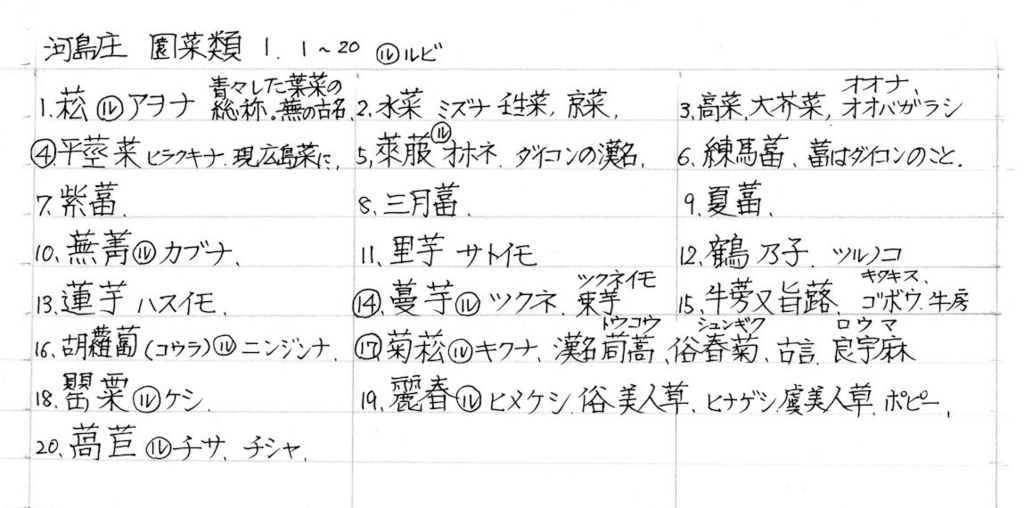 河島庄 園菜類 1. 1~20 ㋸ルビ
1. 菘㋸アヲナ 青々した葉菜の総称。蕪の古名、 2. 水菜 ミズナ 壬生菜, 京菜, 3. 高菜, 大芥菜, オオナ、オオバガラシ
④平莖菜 ヒラクキナ. 現広島菜に, 5, 萊菔㋸オホネ. ダイコンの漢名, 6. 練馬葍、葍はダイコンのこと.
7. 紫葍. 8. 三月葍. 9. 夏葍、
10. 蕪菁㋸カブナ、 11. 里芋 サトイモ 12. 鶴乃子、ツルノコ
13. 蓮芋 ハスイモ、 ⑭蔓芋㋸ツクネ. ツクネイモ 束芋 15. 牛蒡又旨蕗、キタキス、ゴボウ. 牛房
16. 胡蘿蔔(コウラ)㋸ニンジンナ. ⑰菊菘㋸キクナ、漢名茼蒿トウコウ、俗春菊シュンギク、古言. 良宇麻ロウマ
18. 罌粟㋸ケシ. 19. 麗春㋸ヒメケシ. 俗美人草. ヒナゲシ. 虞美人草. ポピー,
20. 萵苣㋸チサ、チシャ.